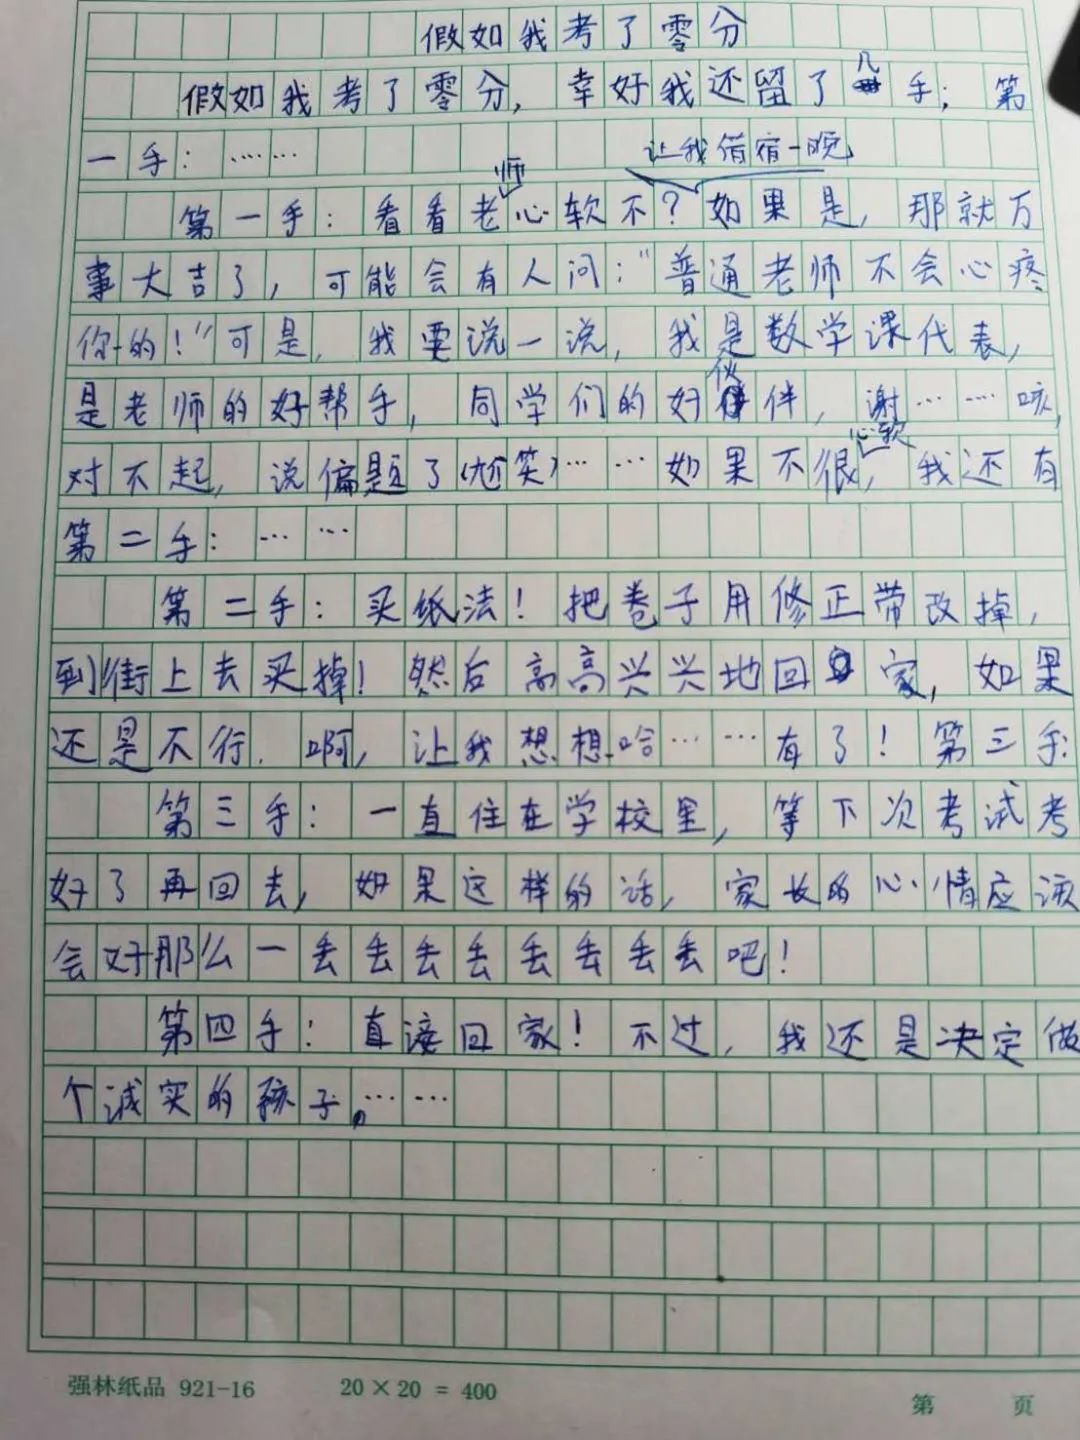 假如我考了零分
假如我考了零分，幸好我还留了几手；第
一手：……
让我借宿一晚
第一手：看看老师心软不？如果是，那就万
事大吉了，可能会有人问：“普通老师不会心疼
你的！”可是，我要说一说，我是数学课代表，
是老师的好帮手，同学们的好伙伴，谢……咳，
对不起，说偏题了（尬笑）……如果不很心软，我还有
第二手：……
第二手：买纸法！把卷子用修正带改掉，
到街上去买掉！然后高高兴兴地回家，如果
还是不行.啊，让我想想哈……有了！第三手：
第三手：一直住在学校里，等下次考试考
好了再回去，如果这样的话，家长的心情应该
会好那么一丢丢丢丢丢丢丢丢吧！
第四手：直接回家！不过，我还是决定做
个诚实的孩子。……
强林纸品 921-16 20×20=400 第 页